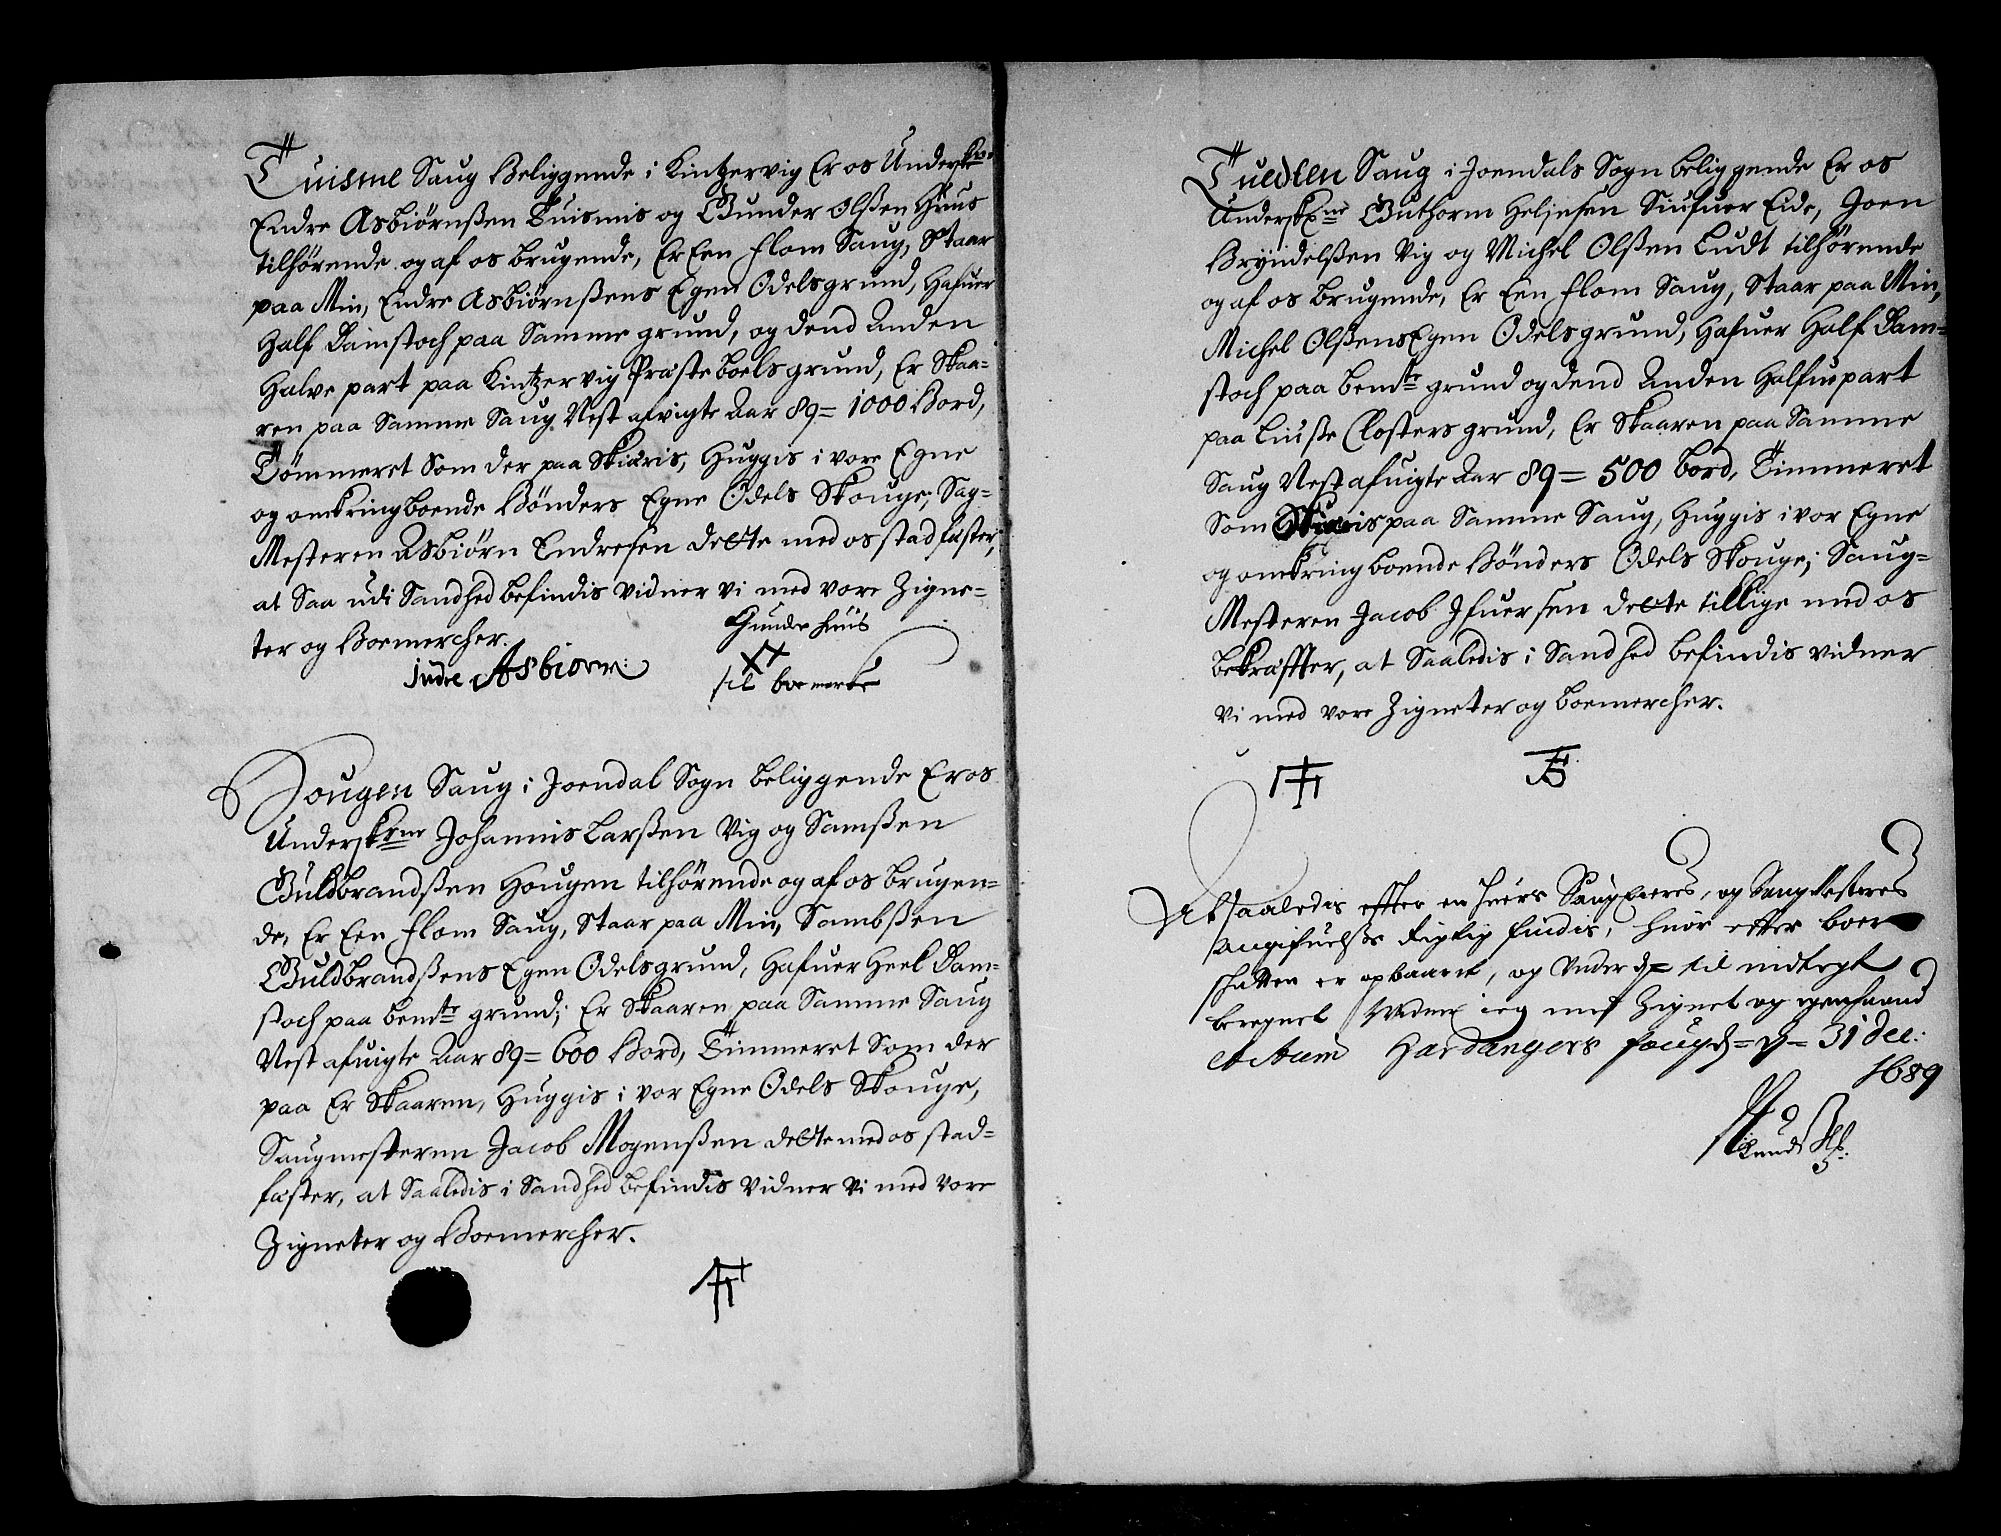 Tuisme Saug Beliggende i Kintzervig Er os Underskrne
Endre Asbiørnßen Tuismis og Gunder Olßen Huus
tilhørende og af os brugende, Er Een flom Saug, Staar
paa Min, Endre Asbiørnßens Egen Odelsgrund, Hafuer
Half Damstoch paa Samme grund, og dend Anden
Halve part paa Kintzervig Præsteboels grund, Er Skaa-
ren paa Samme Saug Nest afvigte Aar 89 = 1000 Bord,
Tømmeret Som der paa Skiæris, Huggis i vore Egne
og omkringboende Bønders Egne Odels Skouge; Sag-
Mesteren Asbiørn Endresen dette med os stadfæster,
at Saa udi Sandhed befindis vidner vi med vore Zigne-
ter og Boemercher.
Gunder Huus
Jndre Asbiorn:
til boemerke
Hougen Saug i Joendal Sogn beliggende Er os
Underskrne Johannis Larßen Vig og Samßen
Guldbrandßen Hougen tilhørende og af os brugen-
de, Er Een flom Saug, Staar paa Min, Sambßen
Guldbrandßens Egen Odelsgrund, Hafuer Heel Dam-
stoch paa bemte grund; Er Skaaren paa Samme Saug
Nest afuigte Aar 89 = 600 Bord, Timmeret Som der
paa Er Skaaren, Huggis i vor Egne Odels Skouge,
Saugmesteren Jacob Mogenßen dette med os stad-
fæster, at Saaledis i Sandhed befindis vidner vi med vore
Zigneter og Boemercher.
Tuedten Saug i Joendals Sogn beliggende Er os
Underskrne Guthorm Heljesen Siusuer Eide, Joen
Bryndelßen Vig og Michel Olßen Ludt tilhørende
og af os brugende, Er Een flom Saug, Staar paa Min,
Michel Olßens Egen Odelsgrund, Hafuer Half Dam-
stoch paa bemte grund og dend Anden Halfue part
paa Liuße Closters grund, Er Skaaren paa Samme
Saug Nest afuigte Aar 89 = 500 bord, Timmeret
Som Skiæris paa Samme Saug, Huggis i vor Egne
og omkring boende Bønders Odels Skouge; Saug-
Mesteren Jacob Jfuersen dette tillige med os
bekræffter, at Saaledis i Sandhed befindis vidner
vi med vore Zigneter og boemercher.
At saaledis effter en huers SaugEieres, og Saug Mesteres
Angifuelße Rigtig findis, huor effter boer
schatten er opbaaret, og under d= til indtegt
beregnet Vidner ieg med Zignet og egenhaand
Actum Hardangers fougd= d= 31 dec:
1689